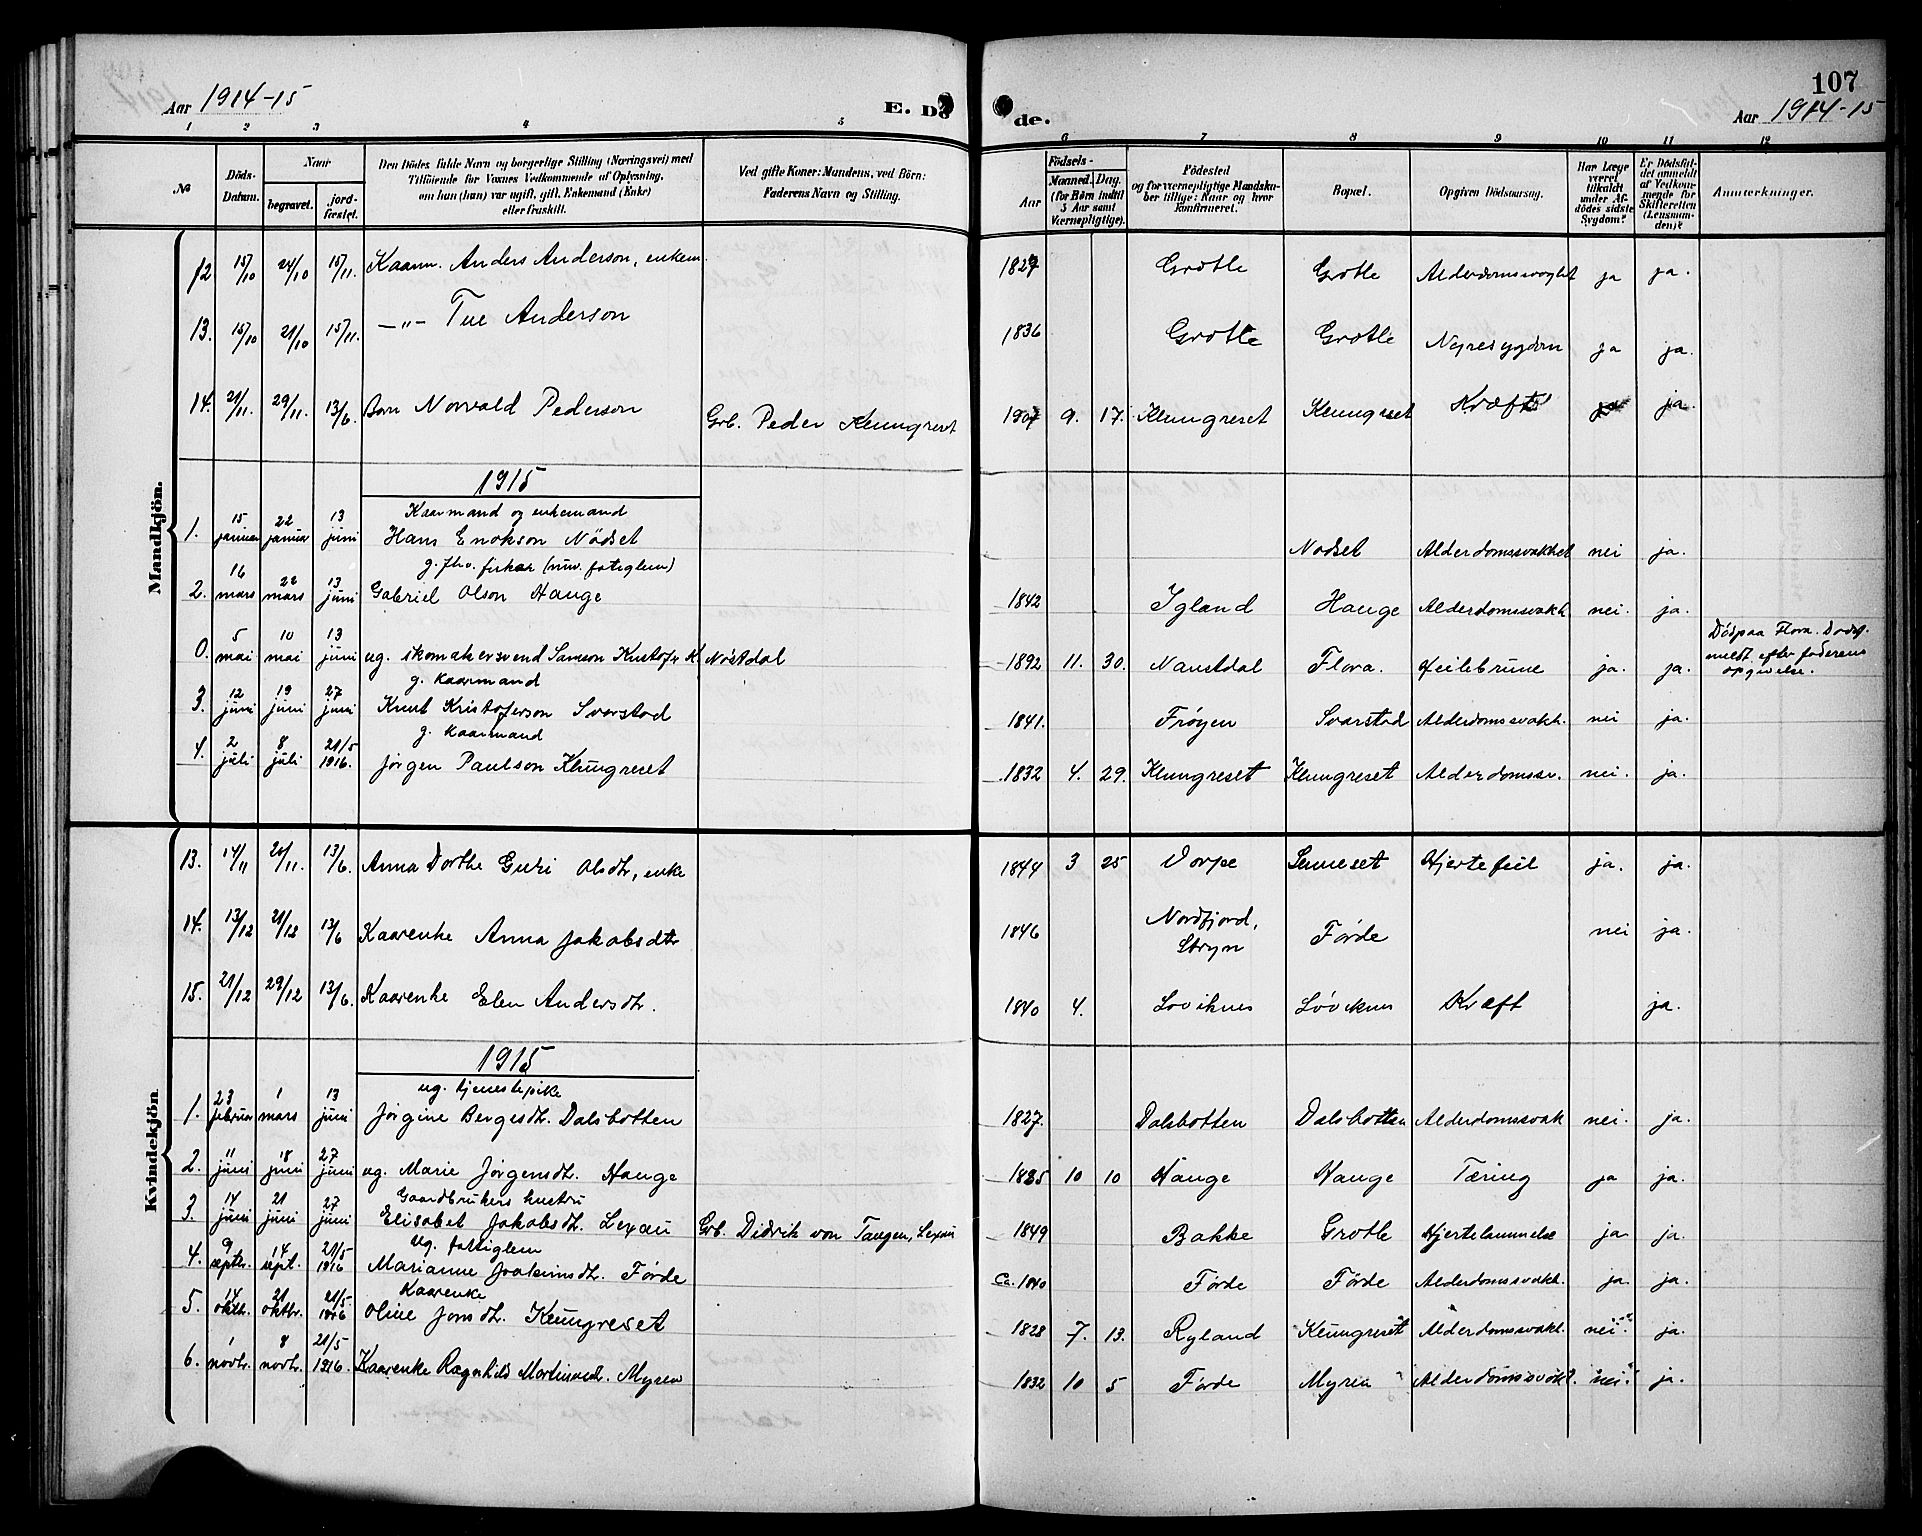 Aar 1914-15
E. Dö
de.
107
Aar 1914-15
1 2 3 4 5 6 7 8 9 10 11 12
No
Döds-
Datum.
Naar
begravet.
jord-
fæstet.
Den Dödes fulde Navn og borgerlige Stilling (Næringsvei) med
Tilföiende for Voxnes Vedkommende af Oplysning,
om hun (han) var ugift, gift, Enkemand (Enke)
eller fraskilt.
Ved gifte Koner: Mandens, ved Börn:
Faderens Navn og Stilling.
Födsels-
Aar
Maaned. Dag.
(for Börn indtil
5 Aar samt
Værnepligtige).
Födested
og for værnepligtige Mandska-
ber tillige: Naar og hvor
konfirmeret.
Bopæl.
Opgiven Dödsaarsag.
Har Læge
været
tilkaldt
under Af-
dödes sidste
Sygdom?
Er Dödsfal-
det anmeldt
af Vedkom-
mende for
Skifteretten
(Lensman-
den)?
Anmærkninger.
Mandkjön.
12 15/10 24/10 15/11. Kaarm. Anders Anderson, enkem. 1827 Grotle Grotle Alderdomssvaghet ja ja.
13. 15/10 21/10 15/11. -"- Tue Anderson 1836 Grotle Grotle Nyresygdom ja ja.
14. 21/11. 29/11. 13/6. Barn Norvald Pederson Grb. Peder Klungreset 1907 9. 17. Klungreset Klungreset Kræft ja ja.
1915
Kaarmand og enkemand
1. 15 januar 22 januar 13 juni Hans Enokson Nödset Nødset Alderdomssvakhet nei ja.
g. fhv. fisker (nuv. fatiglem)
2. 16 mars 22 mars 13 juni Gabriel Olson Hauge 1842 Igland Hauge Alderdomssvakh. nei. ja.
0. 5 mai 10 mai 13 juni ug. skomakersvend Samson Kristofer K. Nöstdal 1892 11. 30. Naustdal Flora. ja. ja. Död paa Flora. Dødsf.
meldt efter faderens
opgivelse.
g. kaarmand
3. 12 juni 19 juni 27 juni Knut Kristoferson Svarstad 1841. Frøyen Svarstad Alderdomssvakh. nei ja.
g. kaarmand
4. 2 juli 8 juli 21/5 1916. Jørgen Paulson Klungreset 1832 4. 29. Klungreset Klungreset Alderdomssv. nei. ja.
Kvindekjön
13. 14/11 20/11. 13/6. Anna Dorthe Guri Olsdtr, enke 1844 3 25 Vorpe Senneset Hjertefeil ja. ja.
14. 13/12 21/12 13/6 Kaarenke Anna Jakobsdtr 1846 Nordfjord,
Stryn Førde nei ja.
15. 21/12 29/12 13/6. Kaarenke Elen Andersdtr. 1840 4. Løviknes Løviknes Kræft ja.
1915
ug. tjenestepike
1. 23 februar 1 mars 13 juni Jørgine Bergesdtr. Dalsbotten 1827. Dalsbotten Dalsbotten Alderdomssvak nei. ja.
2. 11 juni 18 juni 27 juni ug. Marie Jörgensdtr. Hauge 1835 10 10 Hauge Hauge Tæring ja ja.
Gaardbrukers hustru
3. 14 juni 21 juni 27 juni Elisabet Jakobsdtr. Lexau Grb. Didrik von Tangen, Lexau 1849 Bakke Grotle Hjertelammelse ja ja.
Ug. fattiglem
4. 9 septr. 14 sept. 21/5 1916 Marianne Joakimsdtr. Førde Ca. 1840 Førde Førde Alderdomssvakh. ja ja.
Kaarenke
5. 14 oktb. 21 oktbr. 21/5. 1916 Oline Jonsdtr. Klungreset 1828 7. 13. Ryland Klungreset Alderdomssvakh. nei. ja.
6. 1 novbr. 8 novbr. 21/5 1916. Kaarenke Ragnhild Martinusdr. Myren 1832 10 5 Førde Myren Alderdomssvakh. nei. ja.